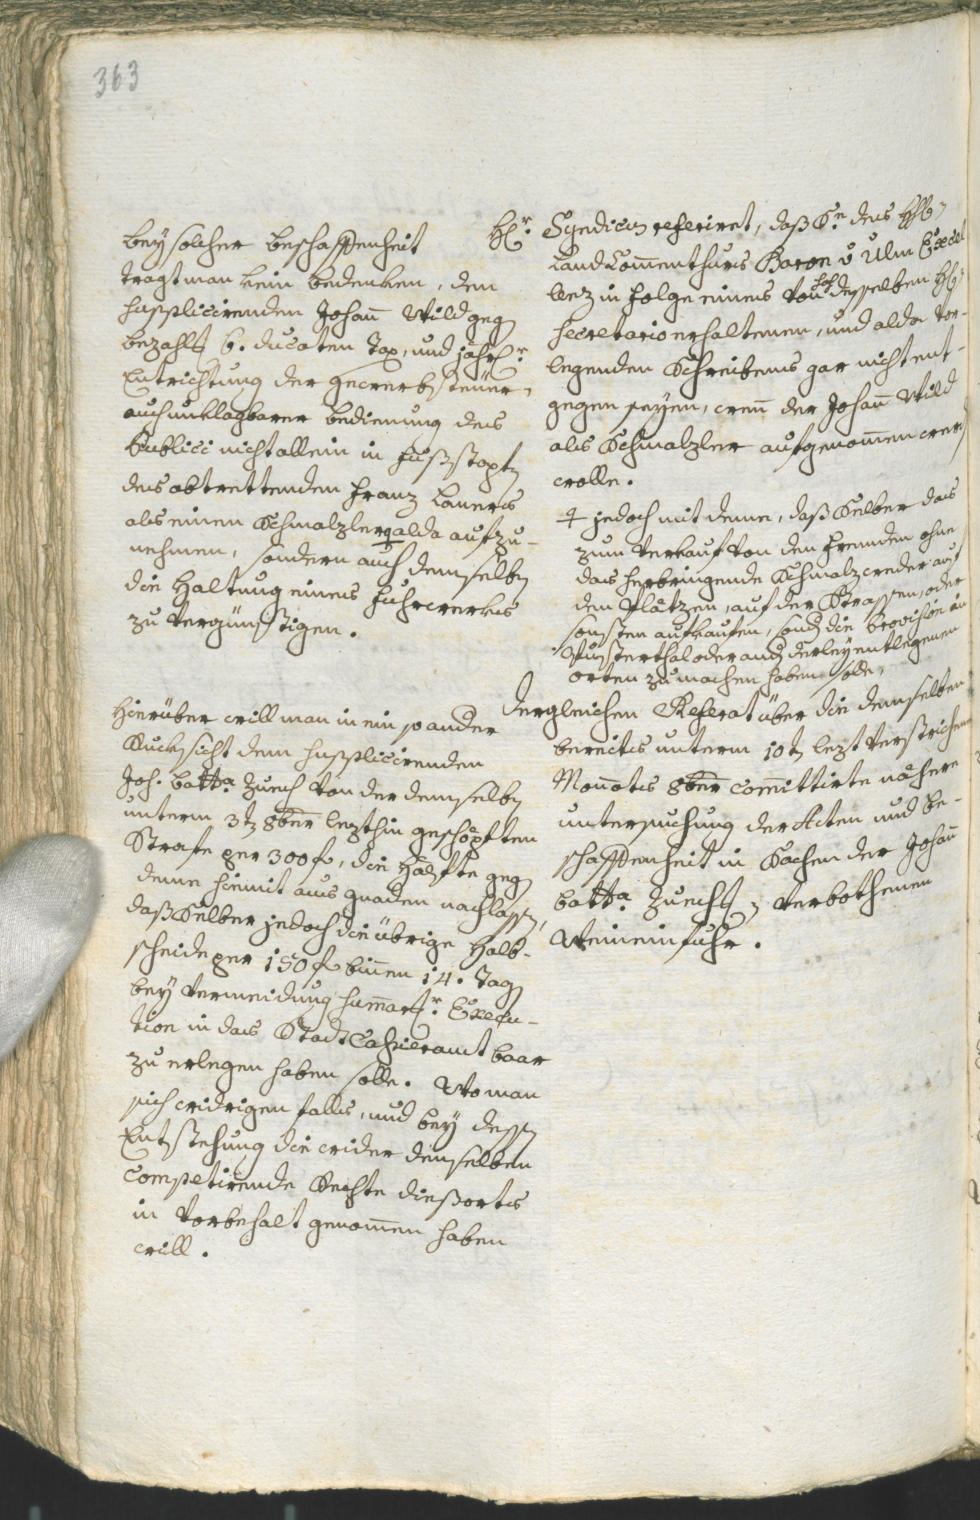 363
bey solcher beschaffenheit
tragt man kein bedenken, dem
supplicirenden Johañ Wild geg
bezahlt 6. ducaten Tax, und jährlr
Entrichtung der gewerbsteüer,
auch unklagbarer bedienung des
Publici nicht allein in fußstapfen
des abtrettenden Franz Lauers
als einen Schmalzler ‡ alda aufzu-
nehmen, sondern auch demselben
die Haltung eines fuhrwerks
zu vergünstigen.
Hierüber will man in ein so ander
Rucksicht dem supplicirenden
Joh. batta Zuech von der demselben
unterm 3t 8ber lezthin geschöpften
Strafe per 300 f, die Hälfte geg
deme hiemit aus gnaden nachlassen,
daß Selber jedoch die übrige Halb-
scheide per 150 f binnen 14. Tag
bey vermeidung summarr Execu-
tion in das Stadt Cassieramt baar
zu erlegen haben solle. Wo man
sich widrigen falls, und bey dessen
Entstehung die wider denselben
competirende Rechte dießorts
in Vorbehalt genom̄en haben
will.
Hr Syndicus referirt, daß Sr des
Land Com̄enthurs Baron v Ulm Excel
lenz in folge eines von desselben
secretario erhaltenen, und alda vor-
legenden Schreibens gar nicht ent-
gegen seyen, wen̄ der Johañ Wild
als Schmalzler aufgenom̄en werd
wolle.
‡ jedoch mit deme, daß Selber das
zum verkauf von den fremden ohne
das herbringende Schmalz weder auf
den Plätzen, auf der Strassen, oder
sonsten aufkaufen, sond die Provision in
Pusterthal oder and derley entlegenen
orten zu machen haben solle.
dergleichen Referat über die demselben
bereits unterm 10t lezt verstrichenen
Monats 8ber com̄ittirte nähere
untersuchung der Acten und be-
schaffenheit in Sachen der Johañ
batta Zuech verbothenen
Weineinfuhr.